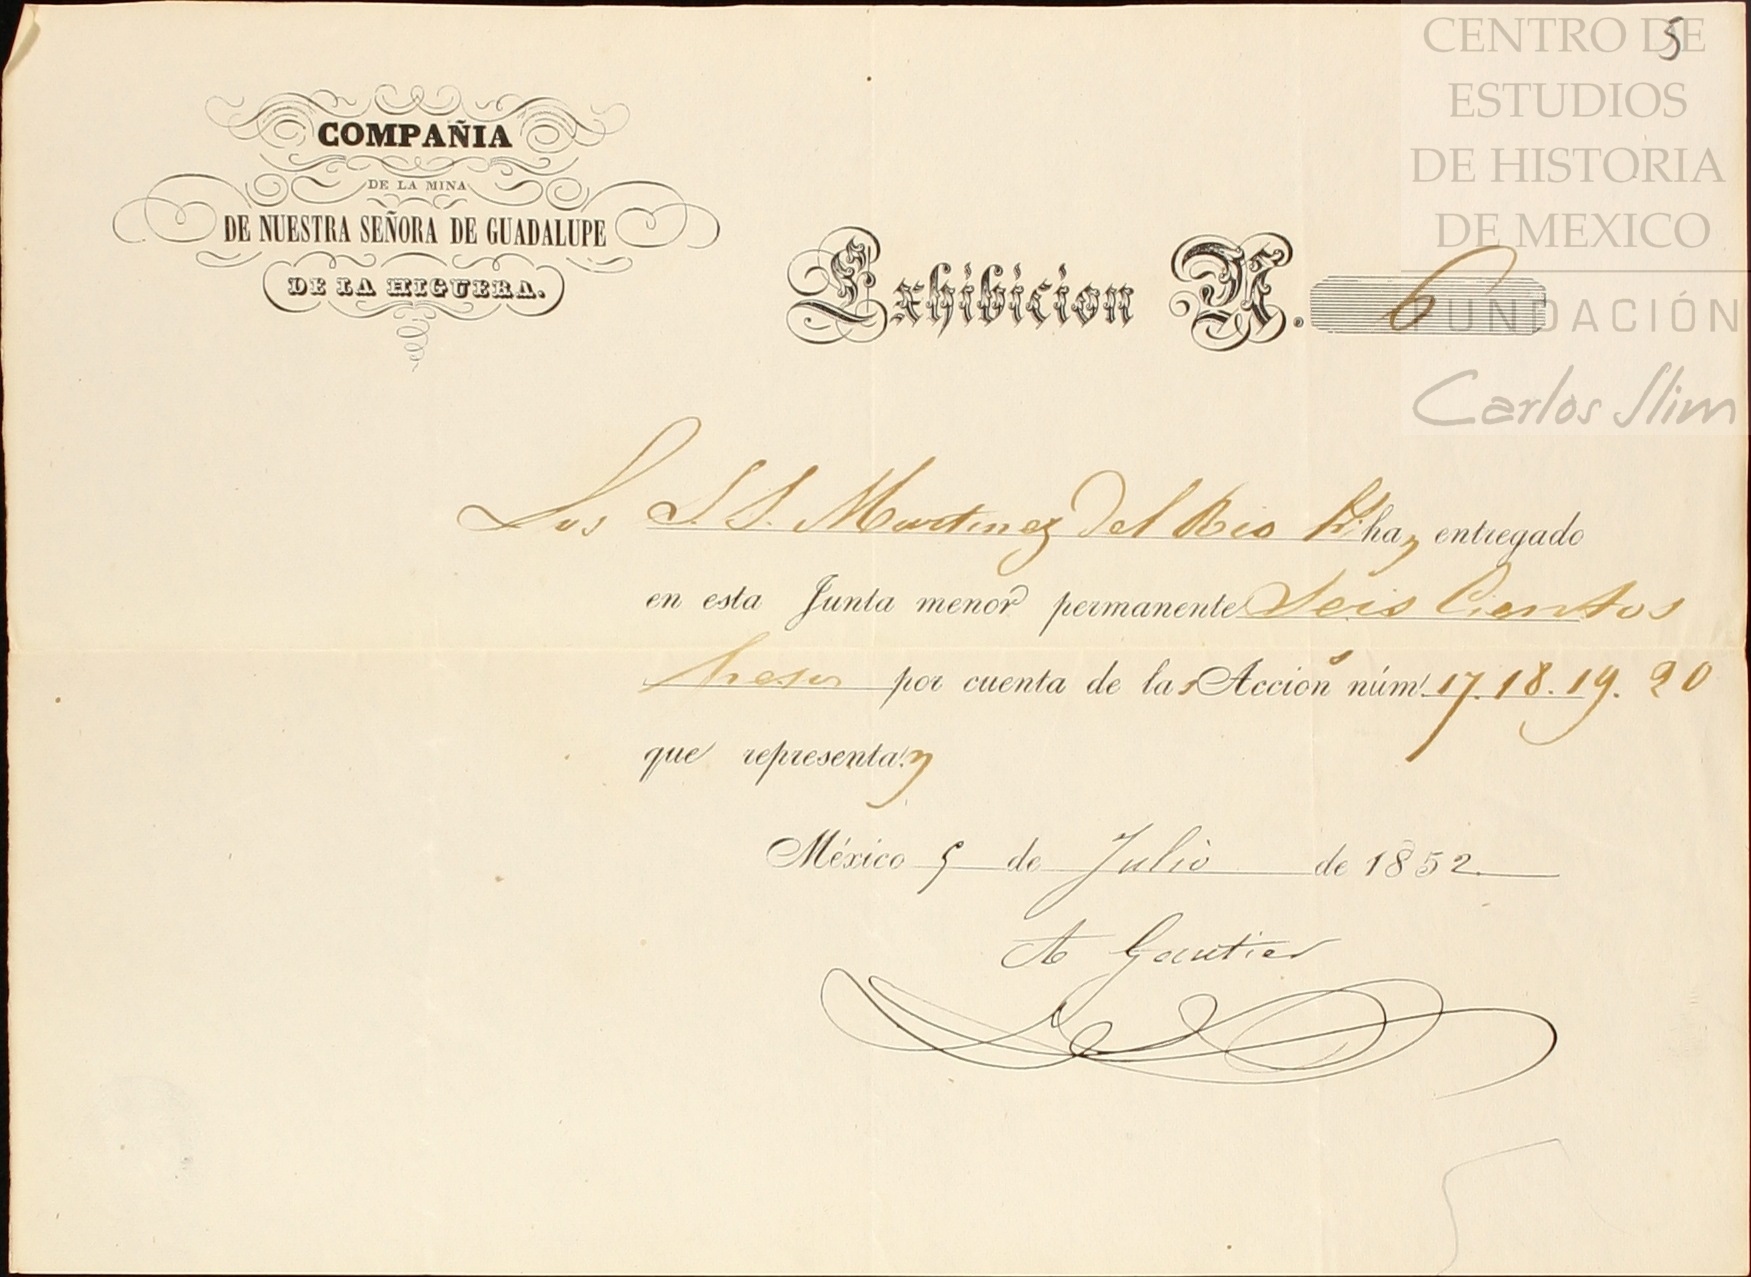 5
CENTRO DE
ESTUDIOS
DE HISTORIA
DE MEXICO
FUNDACIÓN
Carlos Slim
COMPAÑIA
DE LA MINA
DE NUESTRA SEÑORA DE GUADALUPE
DE LA HIGUERA.
Exhibicion N. 6
Los S.S. Martinez del Rio hs. han entregado
en esta Junta menor permanente Seis Cientos
Pesos por cuenta de las Acciones núm. 17. 18. 19. 20
que representan
México 5 de Julio de 1852
A Gautier